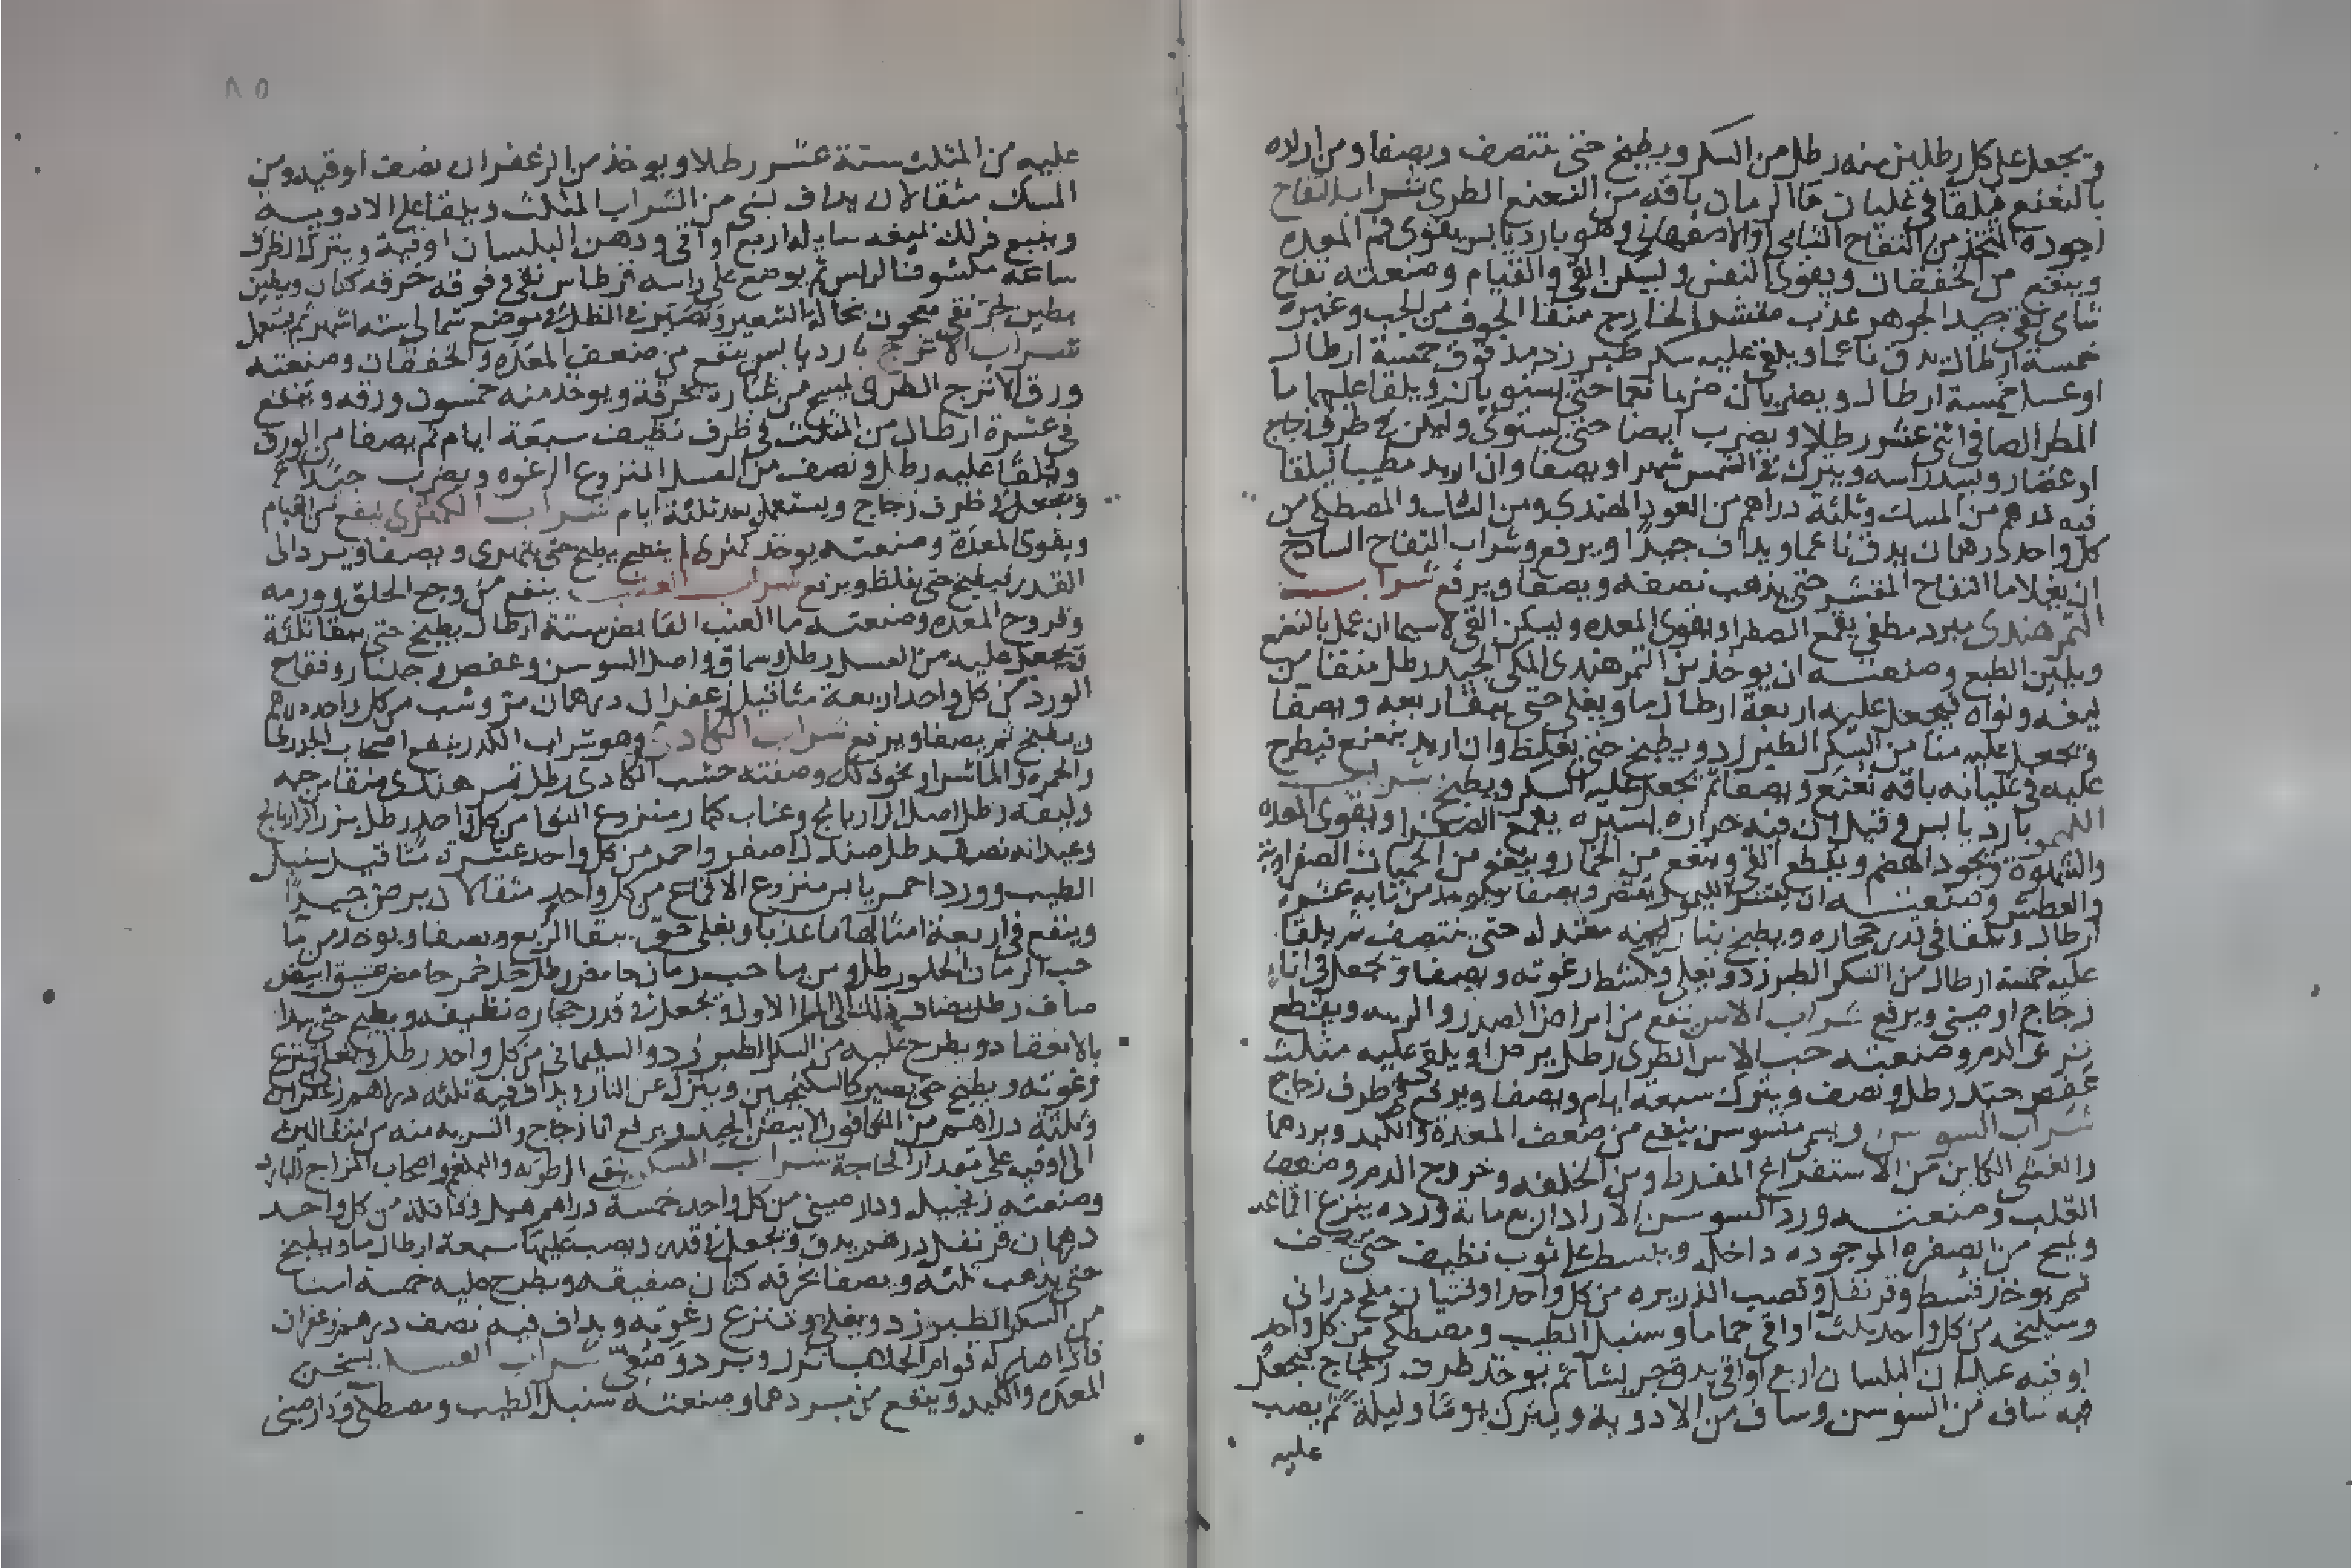 ويجعل على كل رطلين منه رطل من السكر ويطبخ حتى ينتصف ويصفا ومن اراده
بالنعنع فيلقا في غليان ما الرمان باقة من النعنع الطري شراب التفاح
اجوده المتخذ من التفاح الشامي او الاصفهاني وهو بارد يابس يقوي فم المعده
وينفع من الخفقان ويقوي النفس ويسكن القي والقيام وصنعته تفاح
شامي نقي جيد الجوهر عذب مقشر الخارج منقا الجوف من الحب وغيره
خمسة ارطال يدق ناعما ويلقى عليه سكر طبرزد مدقوق خمسة ارطال
او عسل خمسة ارطال ويضربان ضربا نعما حتى يستويا ويلقا عليهما ما
المطر الصافي اثنى عشر رطلا ويضرب ايضا حتى يستوي وليكن في ظرف زجاج
او غضار ويسد راسه ويترك في الشمس شهرا ويصفا وان اريد مطيبا ليلقا
فيه درهم من المسك وثلثة دراهم من العود الهندي ومن النشاب والمصطكى من
كل واحد درهمان يدق ناعما ويداف جيدا ويرفع وشراب التفاح الساذج
ان يغلا ما التفاح المقشر حتى يذهب نصفه ويصفا ويرفع شراب
التمر هندى مبرد مطفي يقمع الصفرا ويقوي المعده ويسكن القي لا سيما ان عمل بالنعنع
ويلين الطبع وصنعته ان يوخذ من التمر هندى المكي الجيد رطل منقا من
ليفه ونواه فيجعل عليه اربعة ارطال ما ويغلى حتى يبقا ربعه ويصفا
ويجعل عليه منا من السكر الطبرزد ويطبخ حتى يغلظ وان اريد بنعنع فيطرح
عليه في غليانه باقة نعنع ويصفا ثم يجعل عليه السكر ويطبخ شراب
الليمو بارد يابس وقيل ان فيه حرارة يسيره يقمع الصفرا ويقوي المعده
والشهوة ويجود الهضم ويقطع القي وينفع من الخمار وينفع من الحميات الصفراوية
والعطش وصنعته ان يقشر الليمو ويعصر ويصفا ويوخذ من مايه عشرة
ارطال ويلقا في قدر حجاره ويطبخ بنار لينه معتدله حتى ينتصف ثم يلقا
عليه خمسة ارطال من السكر الطبرزد ويغلى وتكشط رغوته ويصفا ويجعل في اناء
زجاج او صيني ويرفع شراب الاس ينفع من امراض الصدر والريه ويقطع
نزف الدم وصنعته حب الاس الطري رطل يرض ويلقى عليه مثلث
عفص جيد رطل ونصف ويترك سبعة ايام ويصفا ويرفع في ظرف زجاج
شراب السوسن ويسمى ميسوسن ينفع من ضعف المعدة والكبد وبردهما
والغشى الكاين من الاستفراغ المفرط ومن الخلفه وخروج الدم وضعف
القلب وصنعته ورد السوسن الازاد اربع ماية ورده ينزع اقماعه
ويمسح من الصفرة الموجوده داخله ويبسط على ثوب نظيف حتى يجف
ثم يوخذ قسط وقرنفل وقصب الذريره من كل واحد اوقيتان ملح دراني
وسليخه من كل واحد ثلث اواقي حماما وسنبل الطيب ومصطكى من كل واحد
اوقيه عيدان البلسان اربع اواقي يدق جريشا ثم يوخذ ظرف زجاج يجعل
فيه ساف من السوسن وساف من الادوية ويترك يوما وليلة ثم يصب
عليه
٨٥
عليه من المثلث ستة عشر رطلا ويوخذ من الزعفران نصف اوقيه ومن
المسك مثقالان يداف بشي من الشراب المثلث ويلقا على الادوية
ويتبع ذلك بميعه سايله اربع اواقي ودهن البلسان اوقية ويترك الظرف
ساعة مكشوف الراس ثم يوضع على راسه قرطاس نقي وفوقه خرقه كتان ويطين
بطين حر نقي معجون بنخالة الشعير وتصير في الظل في موضع شمالي ستة اشهر ثم يستعمل
شراب الاترج بارد يابس ينفع من ضعف المعده والخفقان وصنعته
ورق الاترج الطري يمسح من غباره بخرقة ويوخذ منه خمسون ورقه وينقع
في عشرة ارطال من المثلث في ظرف نظيف سبعة ايام ثم يصفا من الورق
ويلقا عليه رطل ونصف من العسل المنزوع الرغوه ويضرب جيدا
ويجعل في ظرف زجاج ويستعمل بعد ثلثة ايام شراب الكمثرى ينفع من القيام
ويقوي المعدة وصنعته يوخذ كمثرى لم ينضج يطبخ حتى يتهرى ويصفا ويرد الى
القدر ليطبخ حتى يغلظ ويرفع شراب العنب ينفع من وجع الحلق وورمه
وقروح المعده وصنعته ما العنب القابض ستة ارطال يطبخ حتى يبقا ثلثة
ويجعل عليه من العسل رطل وسماق واصل السوسن وعفص وجلنار وفقاح
الورد من كل واحد اربعة مثاقيل زعفران درهمان مر وشب من كل واحد درهم
ويطبخ ثم يصفا ويرفع شراب الكادي وهو شراب الكدر ينفع اصحاب الجدري
والحمره والماشرا ونحو ذلك وصفته خشب الكادي رطل تمر هندي منقا من حبه
وليفه رطل اصل الرازيانج وعناب كبار منزوع النوا من كل واحد رطل بزر الرازيانج
وعيدانه نصف رطل صندل اصفر واحمر من كل واحد عشرة مثاقيل سنبل
الطيب وورد احمر يابس منزوع الاقماع من كل واحد مثقالان يرض جيدا
وينقع في اربعة امثالها ما عذبا ويغلى حتى يبقا الربع ويصفا ويوخذ من ما
حب الرمان الحلو رطل ومن ما حب رمان حامض رطل خل خمر حامض عتيق ابيض
صاف رطل يضاف ذلك الى الما الاول ويجعل في قدر حجاره نظيفه ويطبخ حتى يبدا
بالانعقاد ويطرح عليه من السكر الطبرزد والسليماني من كل واحد رطل ويغلى وتنزع
رغوته ويطبخ حتى يصير كالسكنجبين وينزل عن النار ويداف فيه ثلثه دراهم زعفران
وثلثة دراهم من الكافور الابيض الجيد ويرفع في انا زجاج والشربه منه من مثقالين
الى اوقيه على مقدار الحاجة شراب السكر ينقي الرطوبه والبلغم واصحاب المزاج البارد
وصنعته زنجبيل ودارصيني من كل واحد خمسة دراهم هيل وقاقله من كل واحد
درهمان قرنفل درهم يدق ويجعل في قدر ويصب عليها سبعة ارطال ما ويطبخ
حتى يذهب ثلثه ويصفا بخرقه كتان صفيقه ويطرح عليه خمسة امنا
من السكر الطبرزد ويغلى وتنزع رغوته ويداف فيه نصف درهم زعفران
فاذا صار له قوام الجلاب انزل وبرد وصفي شراب العسل يسخن
المعده والكبد وينفع من بردهما وصنعته سنبل الطيب ومصطكى ودارصيني